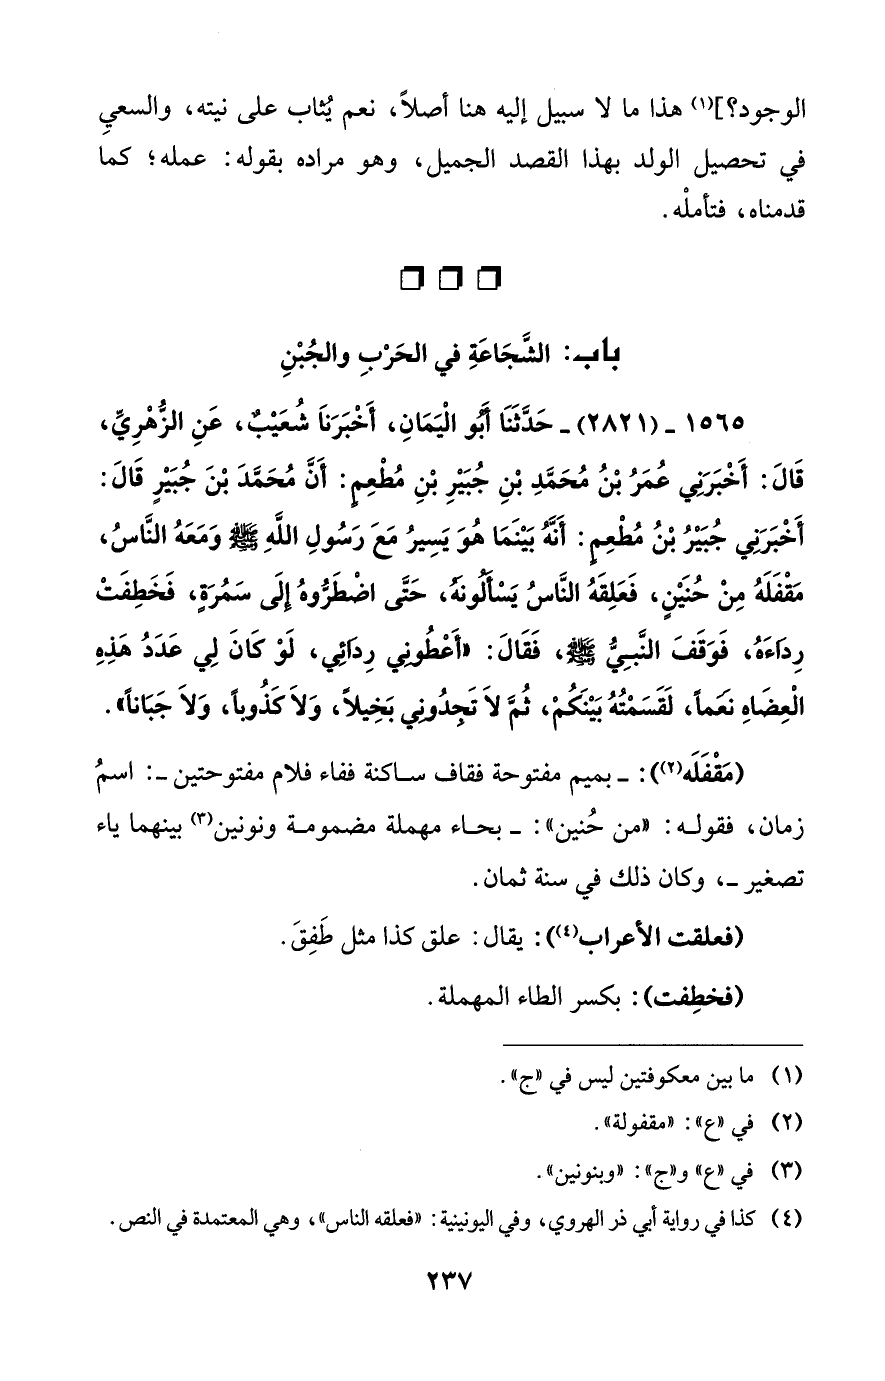 الوجود؟](١) هذا ما لا سبيل إليه هنا أصلاً، نعم يُثاب على نيته، والسعيِ
في تحصيل الولد بهذا القصد الجميل، وهو مراده بقوله: عمله؛ كما
قدمناه، فتأملْه.
باب: الشَّجَاعَةِ في الحَرْبِ والجُبْنِ
١٥٦٥ ـ (٢٨٢١) ـ حَدَّثَنَا أَبُو الْيَمَانِ، أَخْبَرَنَا شُعَيْبٌ، عَنِ الزُّهْرِيِّ،
قَالَ: أَخْبَرَنِي عُمَرُ بْنُ مُحَمَّدِ بْنِ جُبَيْرِ بْنِ مُطْعِمٍ: أَنَّ مُحَمَّدَ بْنَ جُبَيْرٍ قَالَ:
أَخْبَرَنِي جُبَيْرُ بْنُ مُطْعِمٍ: أَنَّهُ بَيْنَمَا هُوَ يَسِيرُ مَعَ رَسُولِ اللَّهِ ﷺ وَمَعَهُ النَّاسُ،
مَقْفَلَهُ مِنْ حُنَيْنٍ، فَعَلِقَهُ النَّاسُ يَسْأَلُونَهُ، حَتَّى اضْطَرُّوهُ إِلَى سَمُرَةٍ، فَخَطِفَتْ
رِدَاءَهُ، فَوَقَفَ النَّبِيُّ ﷺ، فَقَالَ: «أَعْطُونِي رِدَائِي، لَوْ كَانَ لِي عَدَدُ هَذِهِ
الْعِضَاهِ نَعَماً، لَقَسَمْتُهُ بَيْنَكُمْ، ثُمَّ لاَ تَجِدُونِي بَخِيلاً، وَلاَ كَذُوباً، وَلاَ جَبَاناً».
(مَقْفَلَه(٢)): ـ بميم مفتوحة فقاف ساكنة ففاء فلام مفتوحتين ـ: اسمُ
زمان، فقوله: «من حُنين»: ـ بحاء مهملة مضمومة ونونين(٣) بينهما ياء
تصغير ـ، وكان ذلك في سنة ثمان.
(فعلقت الأعراب(٤)): يقال: علق كذا مثل طَفِقَ.
(فخطِفت): بكسر الطاء المهملة.
(١) ما بين معكوفتين ليس في «ج».
(٢) في «ع»: «مقفولة».
(٣) في «ع» و«ج»: «وبنونين».
(٤) كذا في رواية أبي ذر الهروي، وفي اليونينية: «فعلقه الناس»، وهي المعتمدة في النص.
٢٣٧